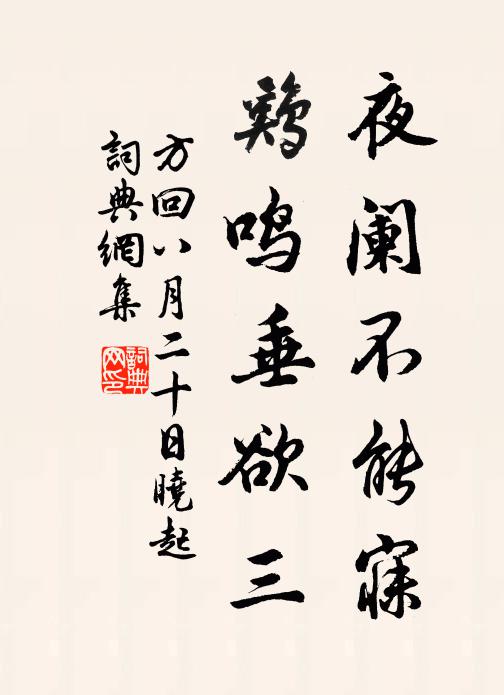 夜阑不能寐
鷄鸣垂欲三
方回八月二十日曉起
詞典網集
詞典网印